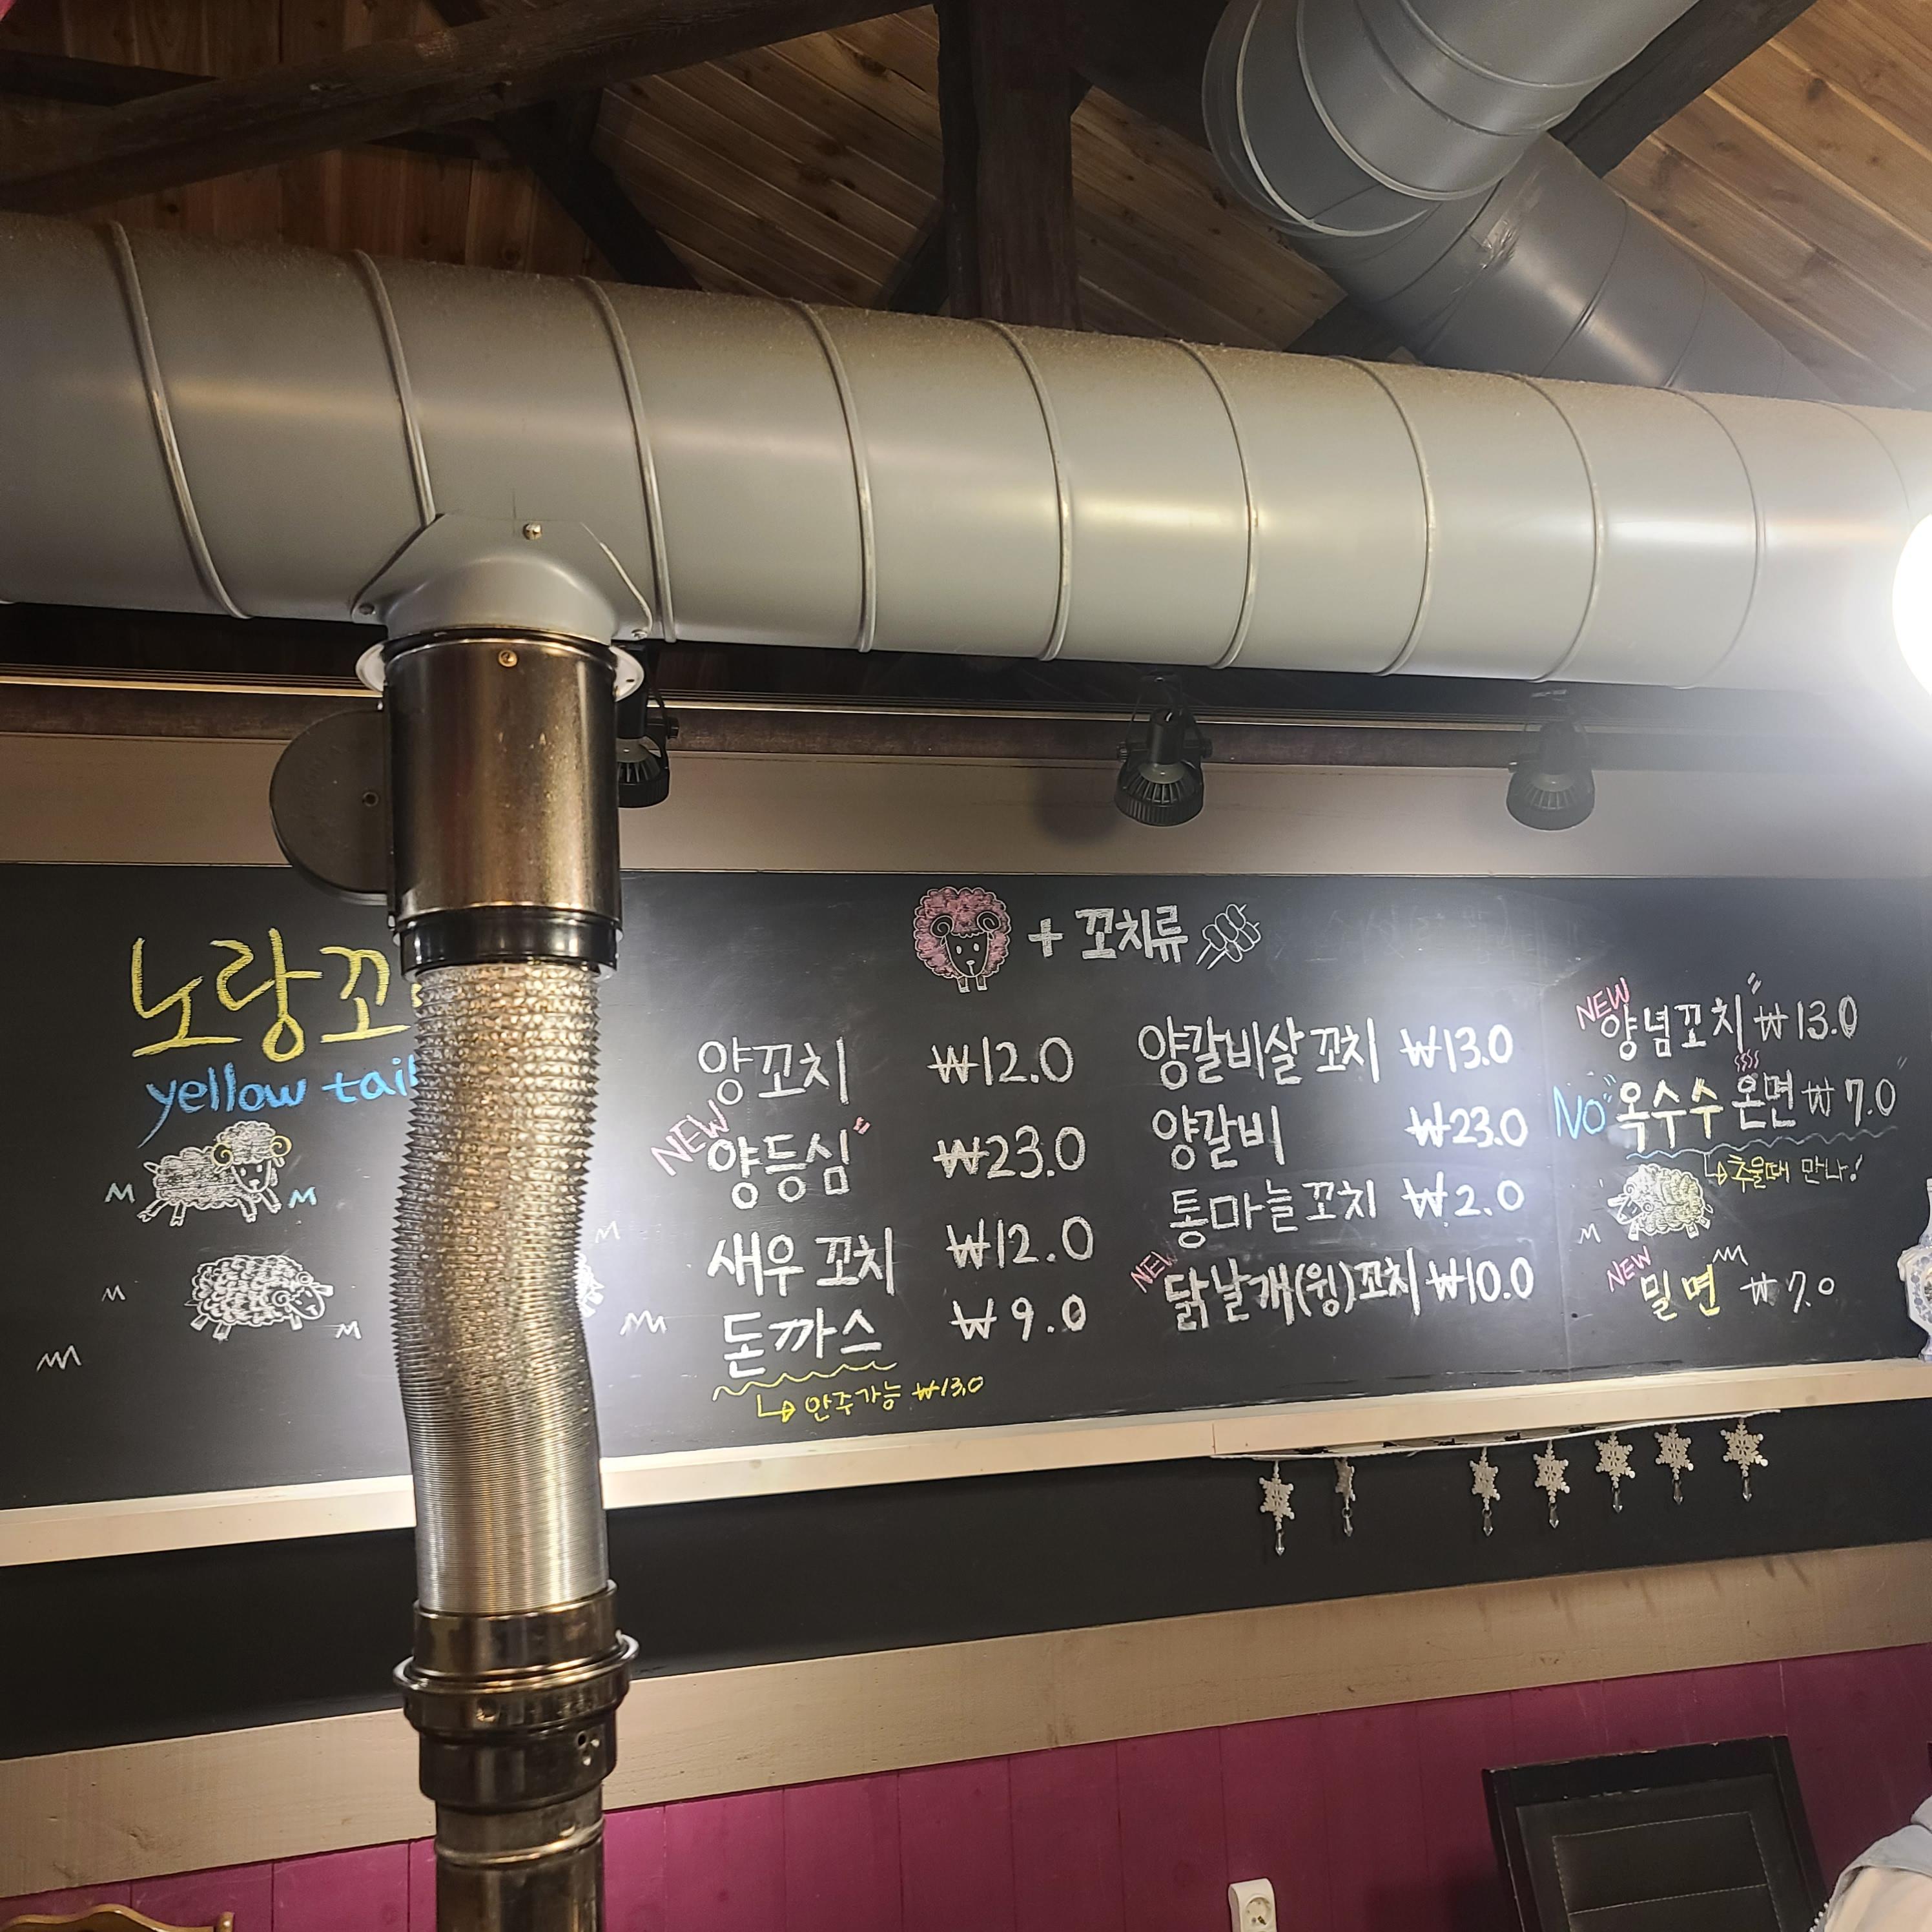 노랑꼬
yellow tail
+ 꼬치류
양꼬치 ₩12.0
NEW
양등심" ₩23.0
새우 꼬치 ₩12.0
돈까스 ₩9.0
↳ 안주가능 ₩13.0
양갈비살 꼬치 ₩13.0
양갈비 ₩23.0
통마늘꼬치 ₩2.0
NEW
닭날개(윙)꼬치 ₩10.0
NEW
양념꼬치" ₩13.0
NO" 옥수수 온면 ₩7.0"
↳ 추울때 만나!
NEW
밀면 ₩7.0